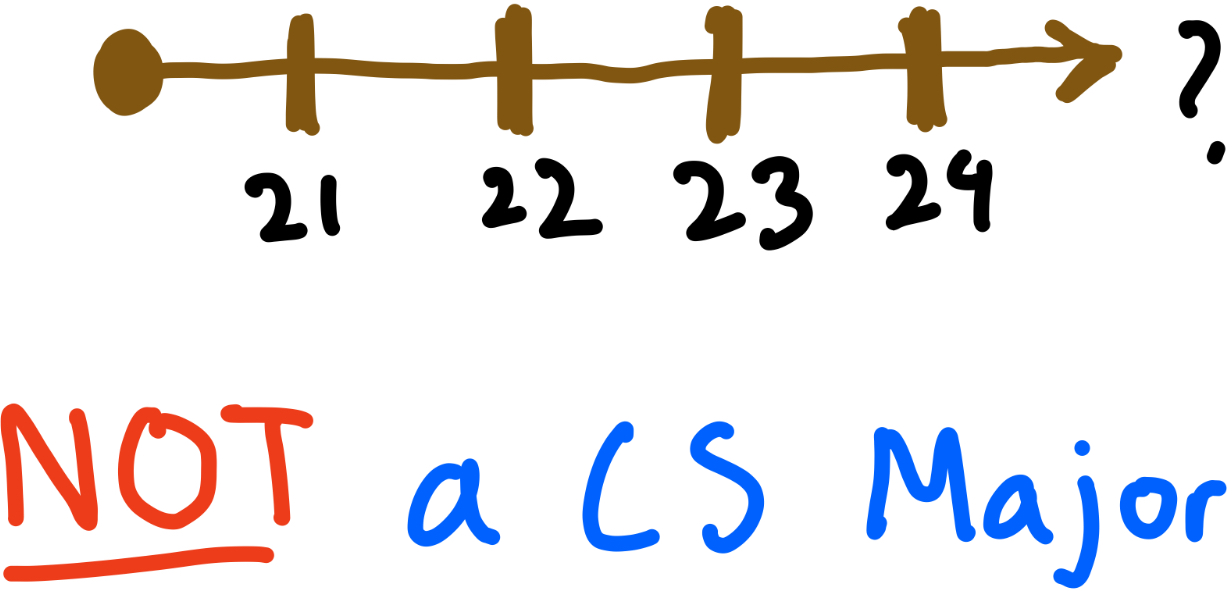 ?
21 22 23 24
NOT a CS Major